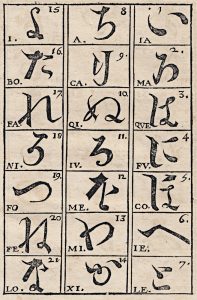 1. い IA
2. ろ MA
3. は QVE
4. に FV
5. ほ CO.
6. へ IE.
7. と LE
8 ち A.
9. り CA.
10. ぬ QI.
11. る IV.
12 を ME.
13 わ MI.
14 か XI.
15 よ I.
16. た BO.
17. れ FA
18. そ NI.
19. つ FO
20 ね FE.
21 な LO.